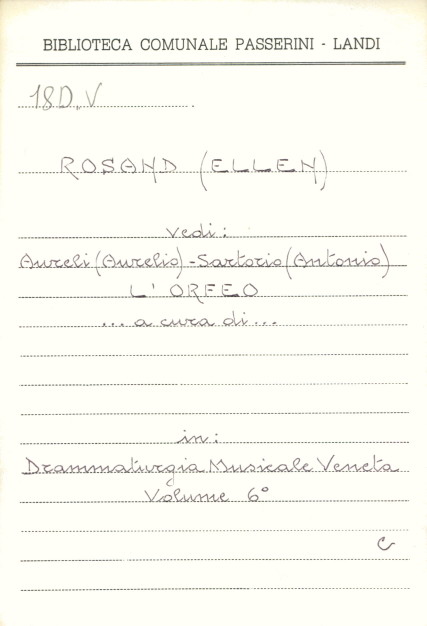 BIBLIOTECA COMUNALE PASSERINI - LANDI
18D.V
ROSAND (ELLEN)
vedi:
Aureli (Aurelio) - Sartorio (Antonio)
L' ORFEO
... a cura di ...
in:
Drammaturgia Musicale Veneta
Volume 6°
C